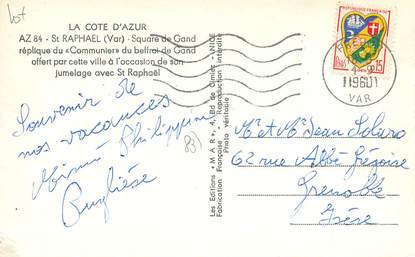 lot
LA COTE D'AZUR
AZ 84 - St RAPHAEL (Var) - Square de Gand
réplique du «Communier» du beffroi de Gand
offert par cette ville à l'occasion de son
jumelage avec St Raphaël
Souvenir de
nos vacances
Mimi Philippine
Pugliese
83
Les Editions « MAR », 4, Bd de Cimiez - NICE
Fabrication Française - Reproduction interdite
Photo véritable
REPUBLIQUE FRANÇAISE
POSTES 15
1960
VAR
Mr et Me Jean Solaro
62 rue Abbé Grégoire
Grenoble
Isère